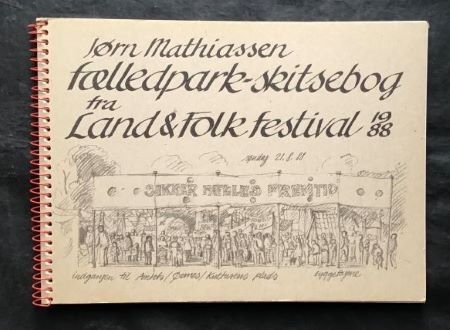 Jørn Mathiassen
fælledpark-skitsebog
fra
Land & Folk festival 1988
søndag 21.8.88
SIKKER FÆLLES FREMTID
indgangen til Amtets/Øernes/Kulturens plads
hyggehjørne